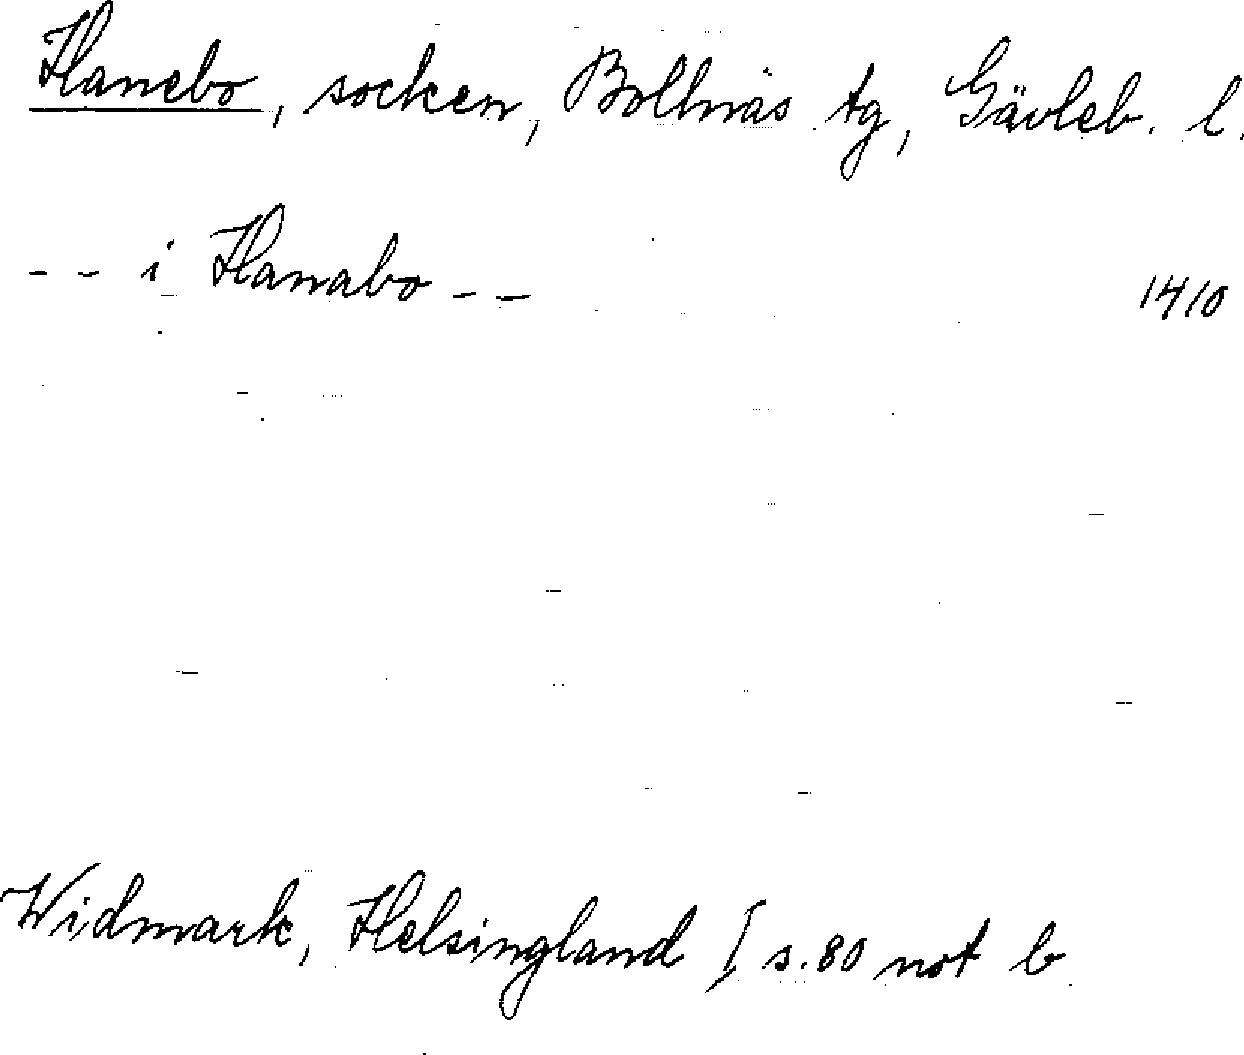 Hanebo, socken, Bollnäs tg, Gävleb. l.
-- i Hanabo -- 1410
Widmark, Helsingland I s.80 not b